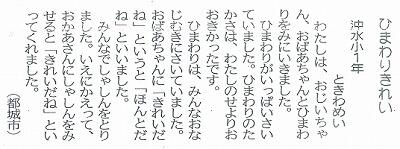 ひまわりきれい
沖水小1年
ときわめい
わたしは、おじいちゃ
ん、おばあちゃんとひまわ
りをみにいきました。
ひまわりがいっぱいさい
ていました。ひまわりのた
かさは、わたしのせよりお
おきかったです。
ひまわりは、みんなおな
じむきにさいていました。
おばあちゃんに「きれいだ
ね」というと「ほんとだ
ね」といいました。
みんなでしゃしんをとり
ました。いえにかえって、
おかあさんにしゃしんをみ
せると「きれいだね」とい
ってくれました。
（都城市）